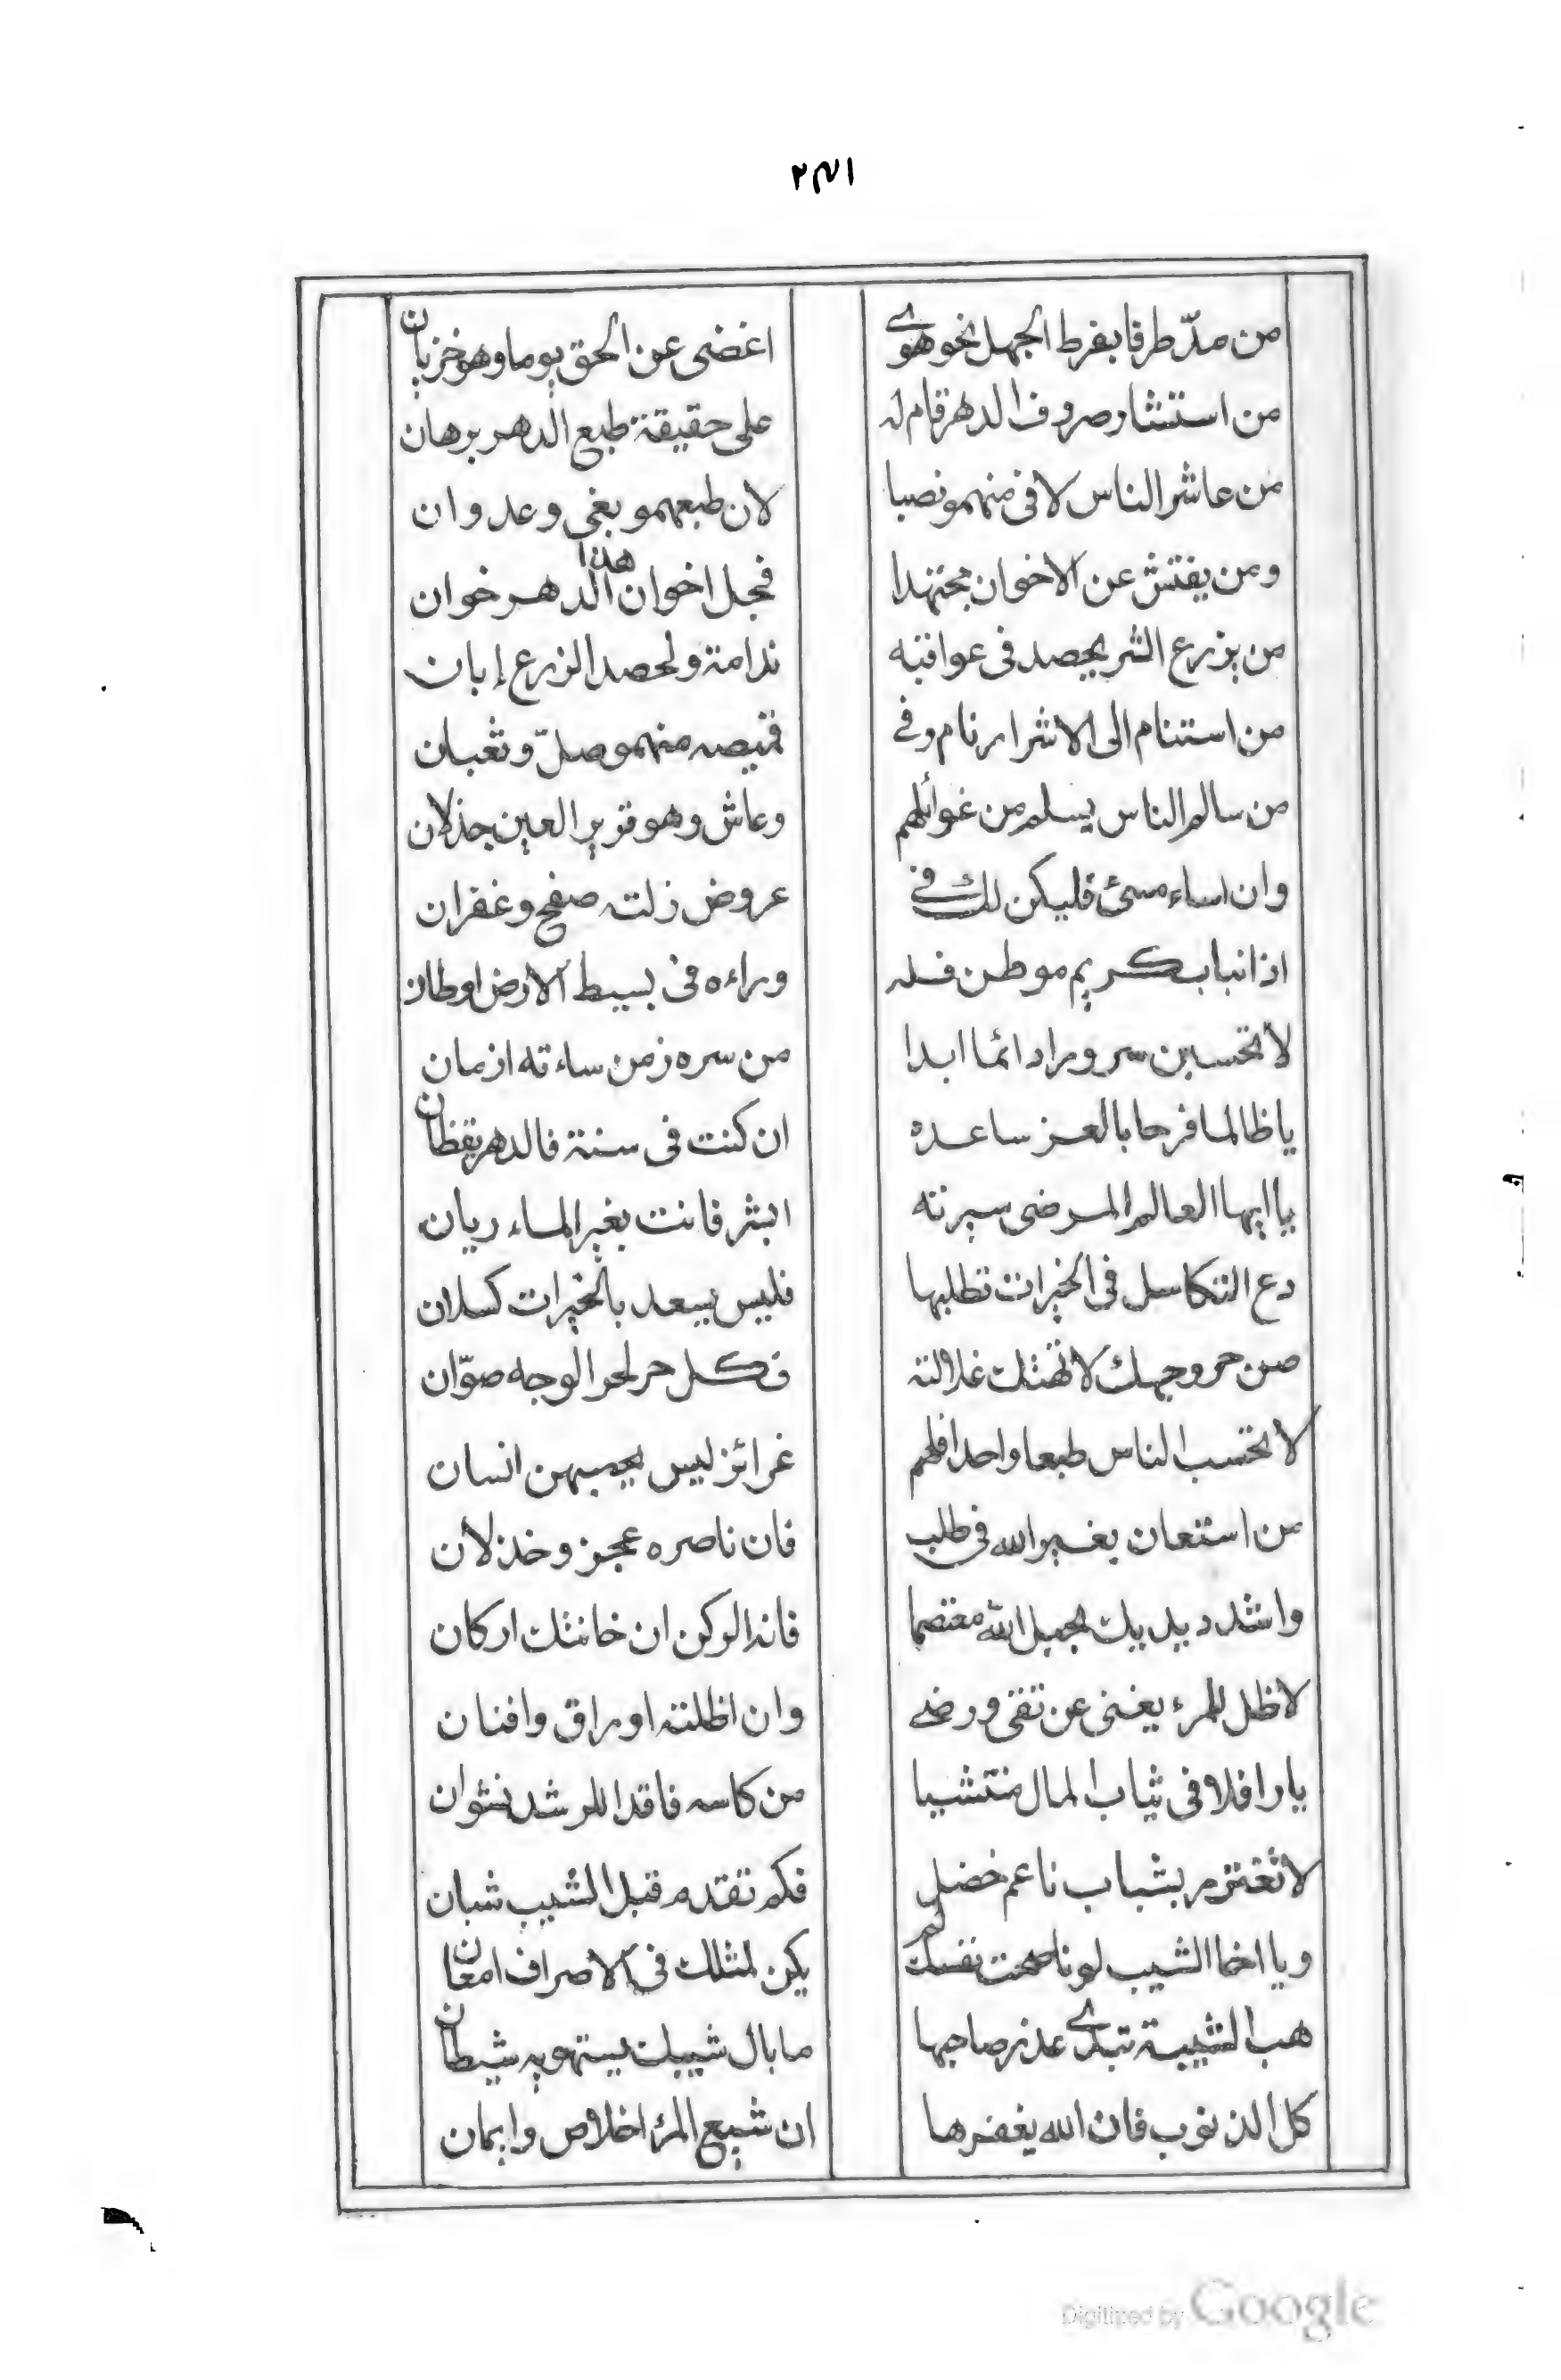 ٢٣١
من مدّ طرفا بفرط الجهل نحو هوى اغضى عن الحق يوما وهو خزيان
من استشار صروف الدهر قام له على حقيقة طبع الدهر برهان
من عاشر الناس لاقى منهمو نصبا لان طبعهمو بغى وعدوان
ومن يفتش عن الاخوان مجتهدا فجل اخوان هذا الدهر خوان
من يزرع الشر يحصد فى عواقبه ندامة ولحصد الزرع إبان
من استنام الى الاشرار نام وفى قميصه منهمو صلّ وثعبان
من سالم الناس يسلم من غوائلهم وعاش وهو قرير العين جذلان
وان اساء مسئ فليكن لك فى عروض زلته صفح وغفران
اذا نبا بكريم موطن فله وراءه فى بسيط الارض اوطان
لا تحسبن سرورا دائما ابدا من سره زمن ساءته ازمان
يا ظالما فرحا بالعز ساعده ان كنت فى سنة فالدهر يقظان
يا ايها العالم المرضى سيرته ابشر فانت بغير الماء ريان
دع التكاسل فى الخيرات تطلبها فليس يسعد بالخيرات كسلان
صن حر وجهك لا تهتك غلالته فكل حر لحر الوجه صوّان
لا تحسب الناس طبعا واحدا فلهم غرائز ليس يحصيهن انسان
من استعان بغير الله فى طلب فان ناصره عجز وخذلان
واشدد يديك بحبل الله معتصما فانه الركن ان خانتك اركان
لا ظل للمرء يغنى عن تقى ورضى وان اظلته اوراق وافنان
يا رافلا فى ثياب المال منتشيا من كاسه فاقدا للرشد نشوان
لا تغترر بشباب ناعم خضل فكم تقدم قبل الشيب شبان
ويا اخا الشيب لو ناصحت نفسك لم يكن لمثلك فى الاصراف امعان
هب الشبيبة تبدى عذر صاحبها ما بال شيبك يستهويه شيطان
كل الذنوب فان الله يغفرها ان شيع المرء اخلاص وايمان
Digitized by Google